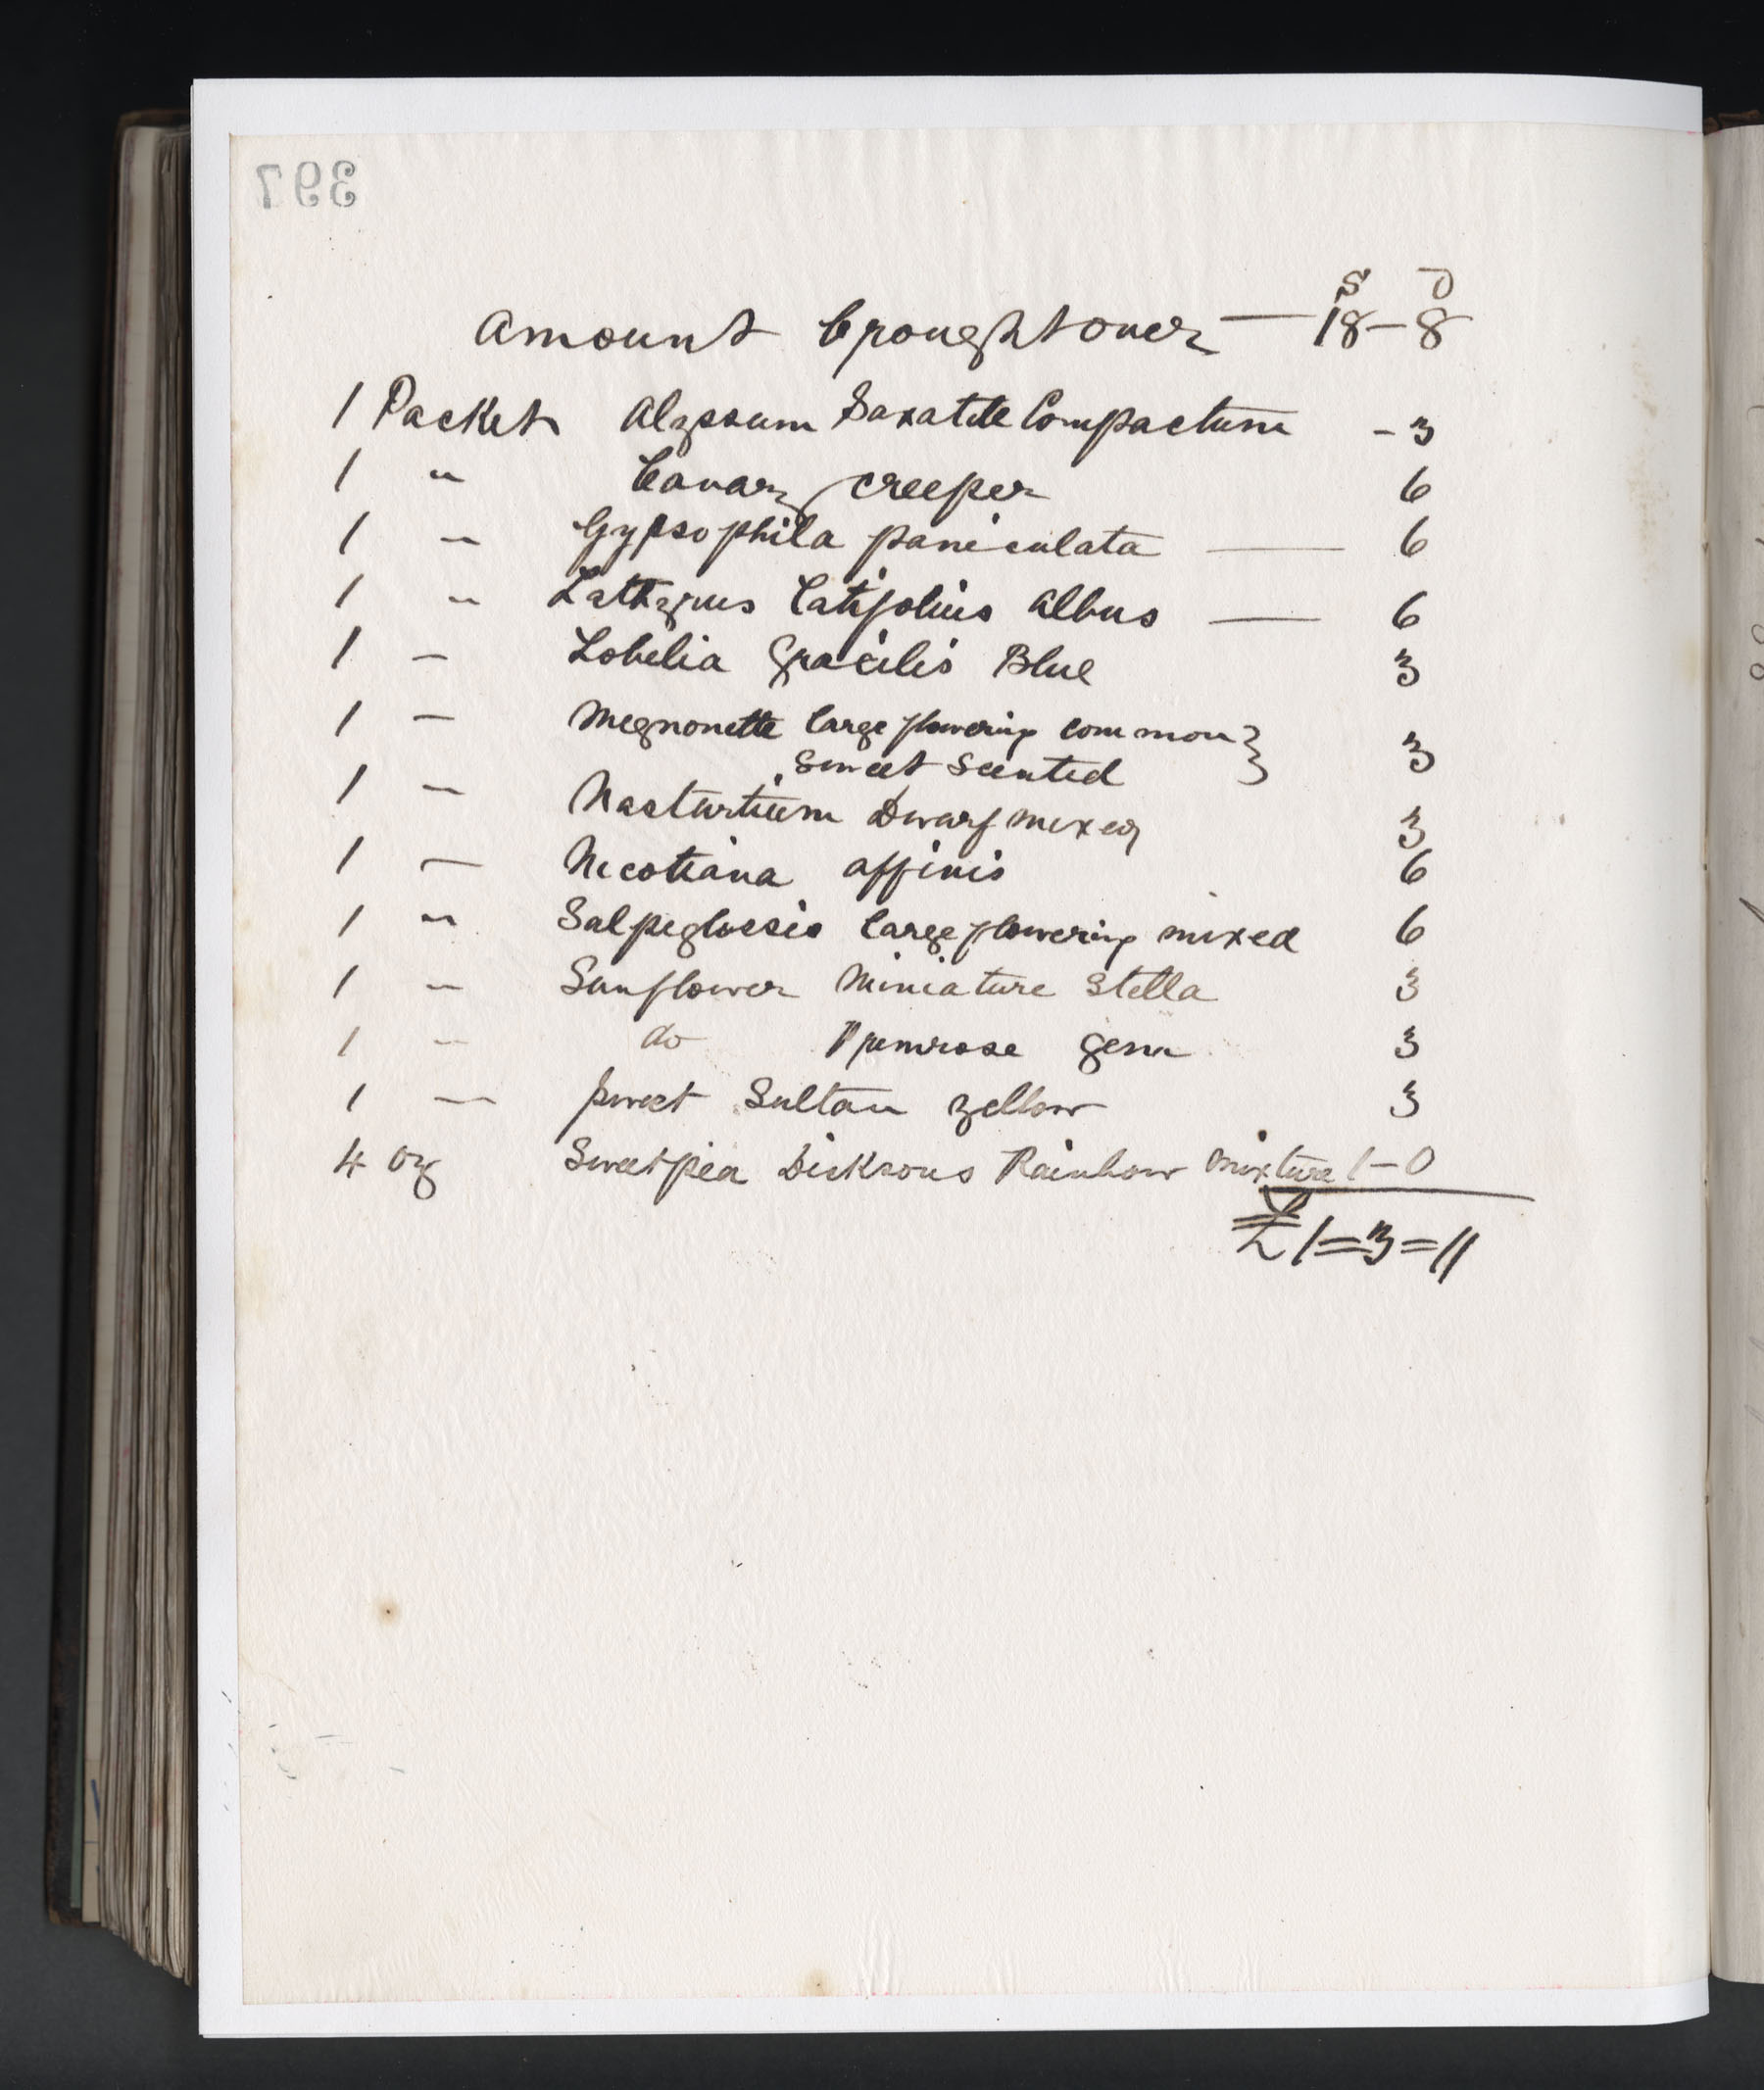 397
S D
Amount broughtover — 18-8
1 Packet Alyssum Saxatile Compactum - 3
1 " Canary creeper 6
1 " Gypsophila paniculata — 6
1 " Lathyrus latifolius albus — 6
1 — Lobelia Gracilis Blue 3
1 — Megnonette large flowering common }
Sweet Scented 3
1 — Nasturtium Dwarf mixed 3
1 — Nicotiana affinis 6
1 " Salpiglossis large flowering mixed 6
1 — Sunflower Miniature Stella 3
1 — do Primrose gem 3
1 — Sweet Sultan yellow 3
4 oz Sweetpea Dicksons Rainbow mixture 1-0
£1=3=11